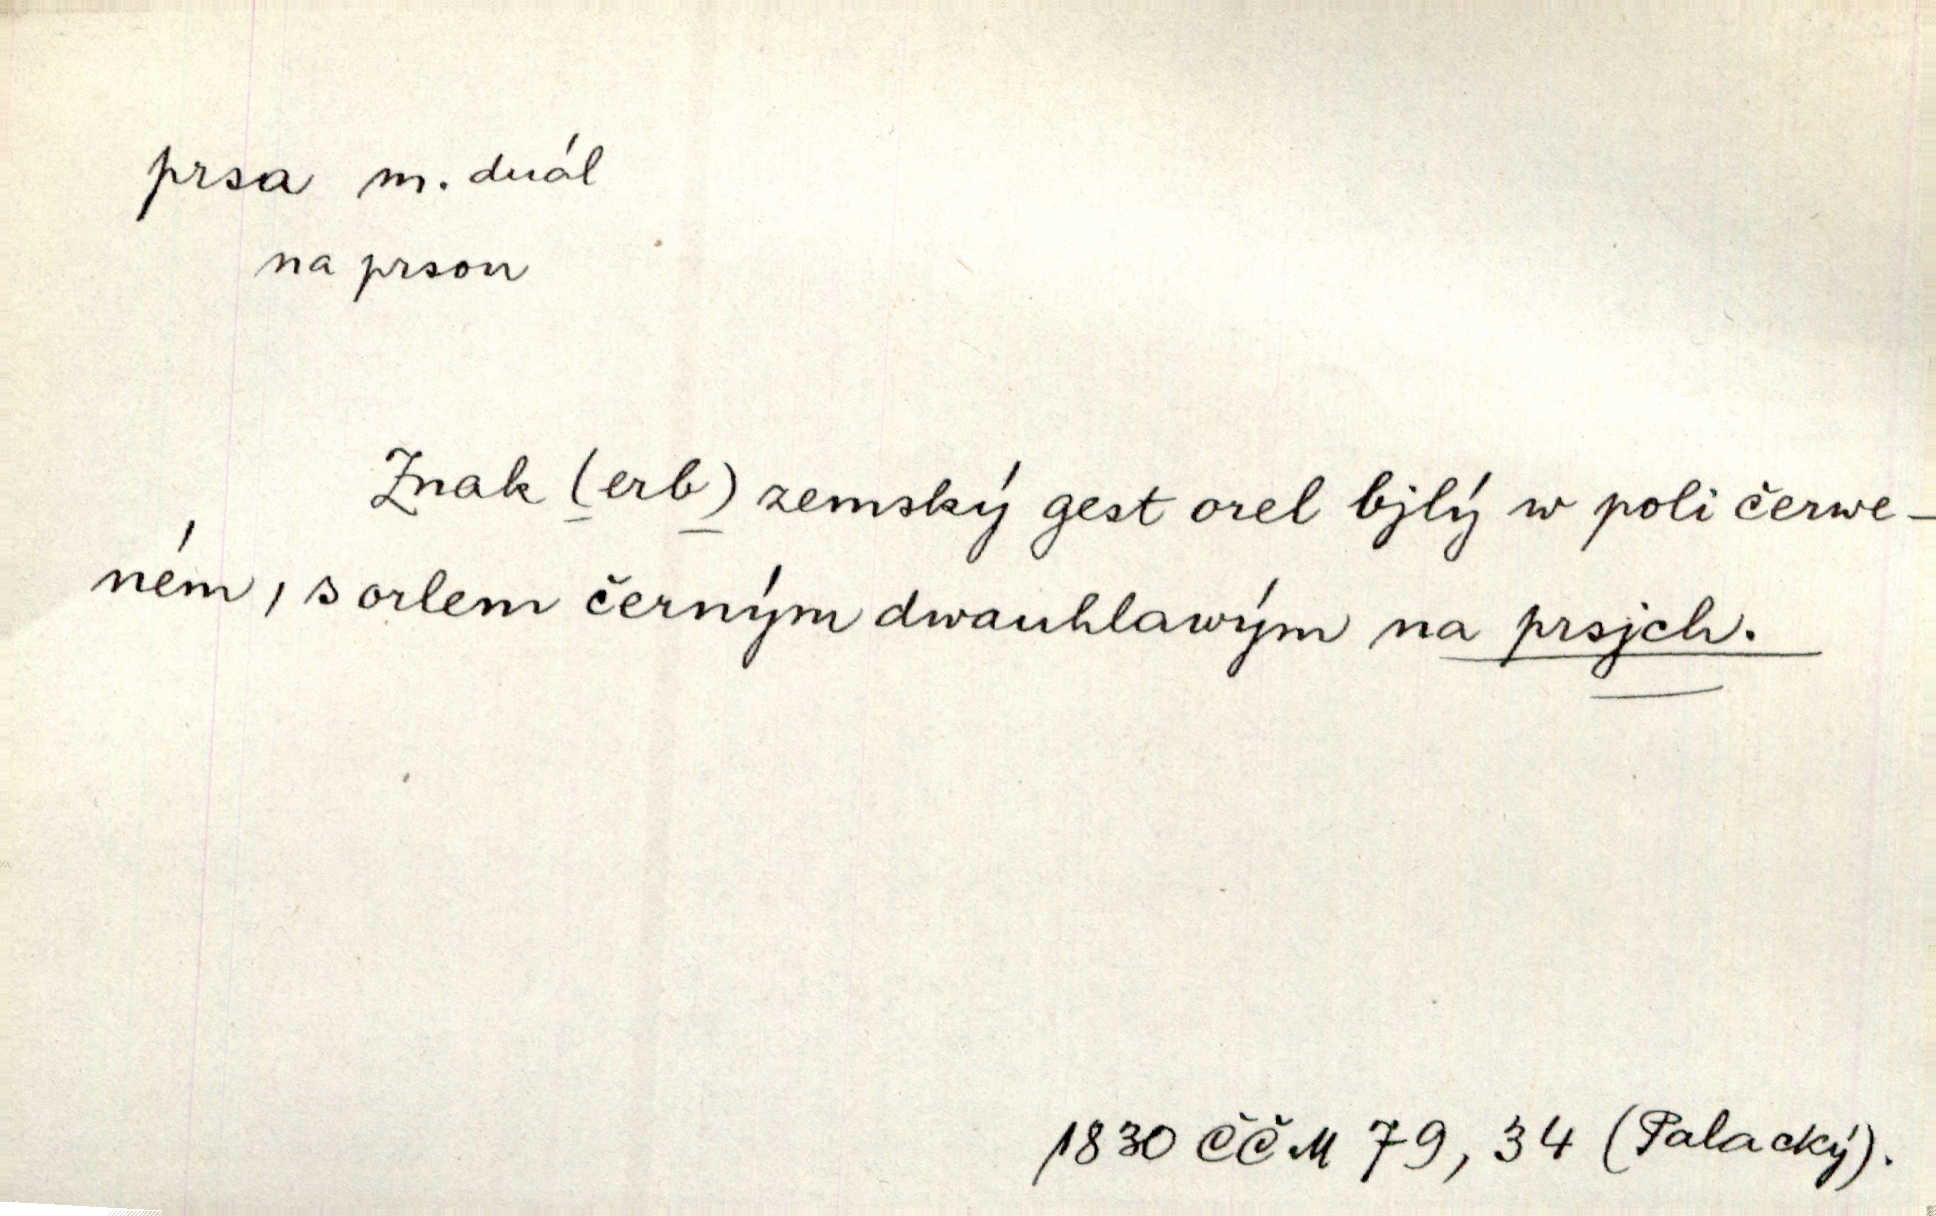 prsa m. duál
na prsou
Znak (erb) zemský gest orel bjlý w poli červe-
ném, s orlem černým dwauhlawým na prsjch.
1830 ČČM 79, 34 (Palacký).